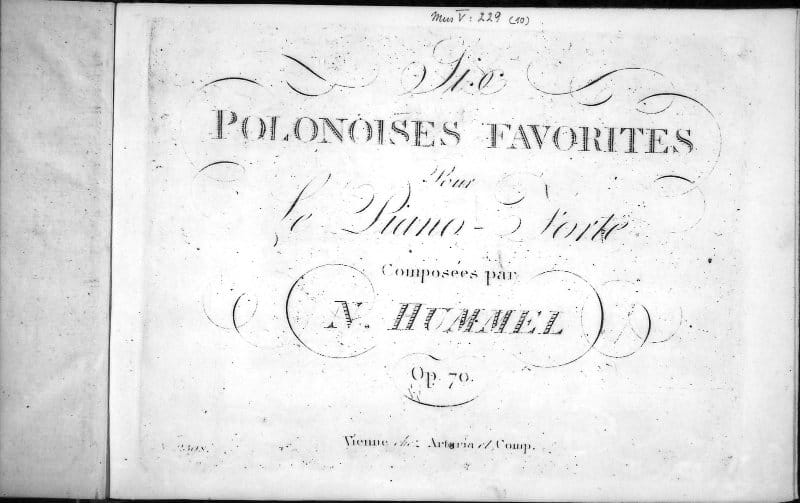 Mus V: 229 (10)
Six
POLONOISES FAVORITES
Pour
Le Piano-Forte
Composées par
N. HUMMEL
Op. 70.
Vienne chez Artaria et Comp.